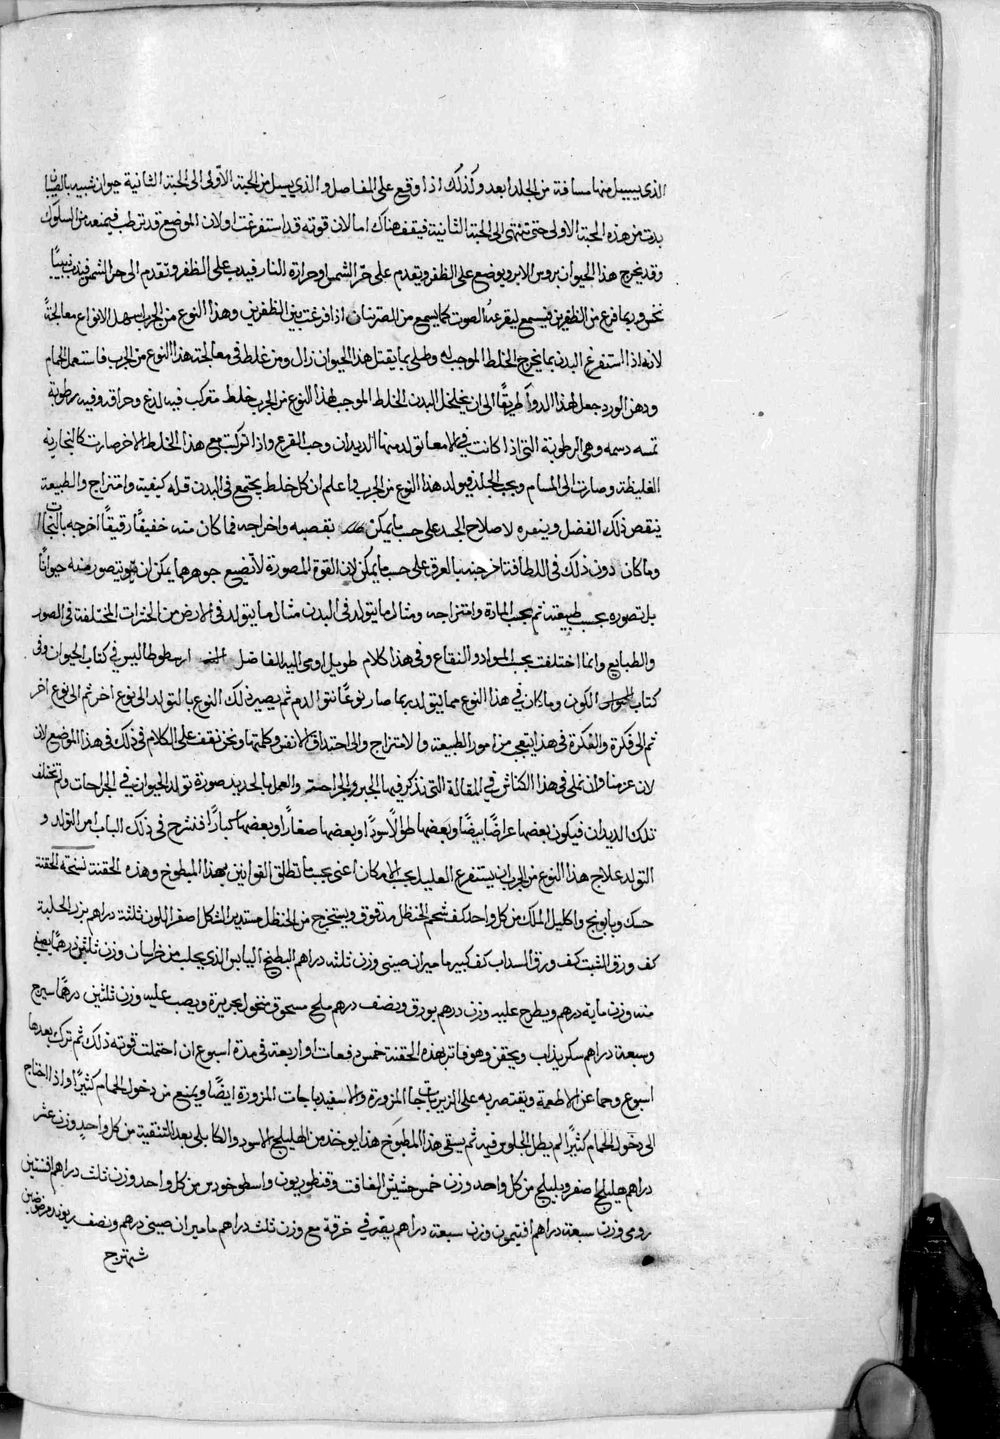 الذي يسيل منها مسافة من الجلد ابعد وكذلك اذا وقع على المفاصل والذي يسيل من الحبة الاولى الى الحبة الثانية حيوان شبيه بالصيبان
يدب من هذه الحبة الاولى حتى تنتهى الى الحبة الثانية فيقف هناك اما لان قوته قد استفرغت او لان الموضع قد ترطب فيمنعه من السلوك
وقد يخرج هذا الحيوان بروس الابر ويوضع على الظفر ويقدم على حر الشمس او حرارة النار فيدب على الظفر وتقدم الى حر الشمس فيدب دبيبًا
وربما فرع من الظفرين فيسمع لقرعه الصوت كما يسمع من الصيبان اذا فرغت بين الظفرين وهذا النوع من الجرب اسهل الانواع معالجةً
لانه اذا استفرغ البدن بما يخرج الخلط الموجب له وطلى بما يقتل هذا الحيوان زال ومن غلط فى معالجة هذا النوع من الجرب فاستعمل الحمام
ودهن الورد جعل لهذا الدوآ طريقًا الى ان يخلخل البدن الخلط الموجب لهذا النوع من الجرب خلط متركب فيه لدغ وحراقة وفيه رطوبة
دسمه وهى الرطوبة التى اذا كانت في الامعا تولد منها الديدان وحب القرع واذا تركبت مع هذا الخلط الاخر صارت كالبخارية
الغليظة وصارت الى المسام وبحب الجلد فيولد هذا النوع من الجرب واعلم ان كل خلط يجتمع فى البدن فله كيفيت وامتزاج والطبيعة
ينقص ذلك الفضل وينفره لاصلاح الجسد على حسب ما يمكن بقصبه واخراجه فما كان منه خفيفًا رقيقًا اخرجه بالبخارات
وما كان دون ذلك فى اللطافة اخرجته بالعرق على حسب ما يمكن لان القوة المصورة لا تضيع جوهرها يمكن ان يتصور منه حيوانًا
بل تصوره بحسب طبيعته ثم بحسب المادة وامتزاجه ومثال ما يتولد فى البدن مثال ما يتولد فى الارض من الحشرات المختلفة فى الصور
والطبايع وانما اختلفت بحسب المواد والبقاع وفى هذا كلام طويل اومى اليه الفاضل ارسطوطاليس في كتاب الحيوان وفى
كتاب الكون وما كان في هذا النوع مما يتولد ربما صار نوعًا الدم ثم يصير ذلك النوع بالتولد الى نوع اخر ثم الى نوع اخر
ثم الى فكرة والفكرة فى هذا من امور الطبيعة والامتزاج والى الانفس وكلمتها ونحن نقف على الكلام فى ذلك فى هذا الموضع لان
لان عزمنا وان نملى فى هذا الكناش في المقالة التى نذكر فيها الجبر والجراحة والعمل بالحديد صورة تولد الحيوان في الجراحات ولم تختلف
تلك الديدان فيكون بعضها عراضًا بيضًا وبعضها طوالًا سودًا او بعضها صغارًا وبعضها كبارًا فنشرح فى ذلك الباب امر التولد و
التولد علاج هذا النوع من الجرب ان يستفرغ العليل بحسب الامكان اعنى بحسب ما تطلق القوانين بهذا المطبوخ وهذه الحقنة نسخه الحقنة
حسك وبابونج واكليل الملك من كل واحد كف شحم الحنظل مدقوق ويستخرج من الحنظل مستدير الشكل اصفر اللون ثلثة دراهم بزر الحلبة
كف ورق الشبت كف ورق السداب كف كبير ماميران صينى وزن ثلثه دراهم البطيخ اليابس الذي يجلب من خراسان وزن ثلثين درهمًا يصفى
منه وزن ماية درهم ويطرح عليه وزن درهم بورق ونصف درهم ملح مسحوق منخول بحريرة ويصب عليه وزن ثلثين درهمًا سيرج
وسبعة دراهم سكر يذاب ويحقن وهو فاتر بهذه الحقنة خمس دفعات او اربعة فى مدة اسبوع ان احتملت قوته ذلك ثم ترك بعدها
اسبوع وحما عن الاطعمة ويقتصر به على الزيرباجات المزورة والاسفيدباجات المزورة ايضًا ويمنع من دخول الحمام كثيرًا واذا احتاج
الى دخول الحمام كثيرًا لم يطل الجلوس فيه ثم يسقى هذا المطبوخ هذا يوخذ من الهليلج الاسود والكابلى بعد التنقية من كل واحد وزن عشر
دراهم هليلج اصفر وبليلج من كل واحد وزن خمس حشيش الغافت وقنطوريون واسطوخودس من كل واحد وزن ثلث دراهم افسنتين
رومى وزن سبعة دراهم افتيمون وزن سبعة دراهم يصر في خرقة مع وزن ثلث دراهم ماميران صينى درهم ونصف ريوند مرضوضين